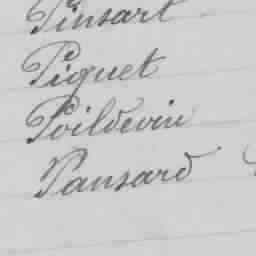 Pinsart
Piquet
Poildevin
Pansard